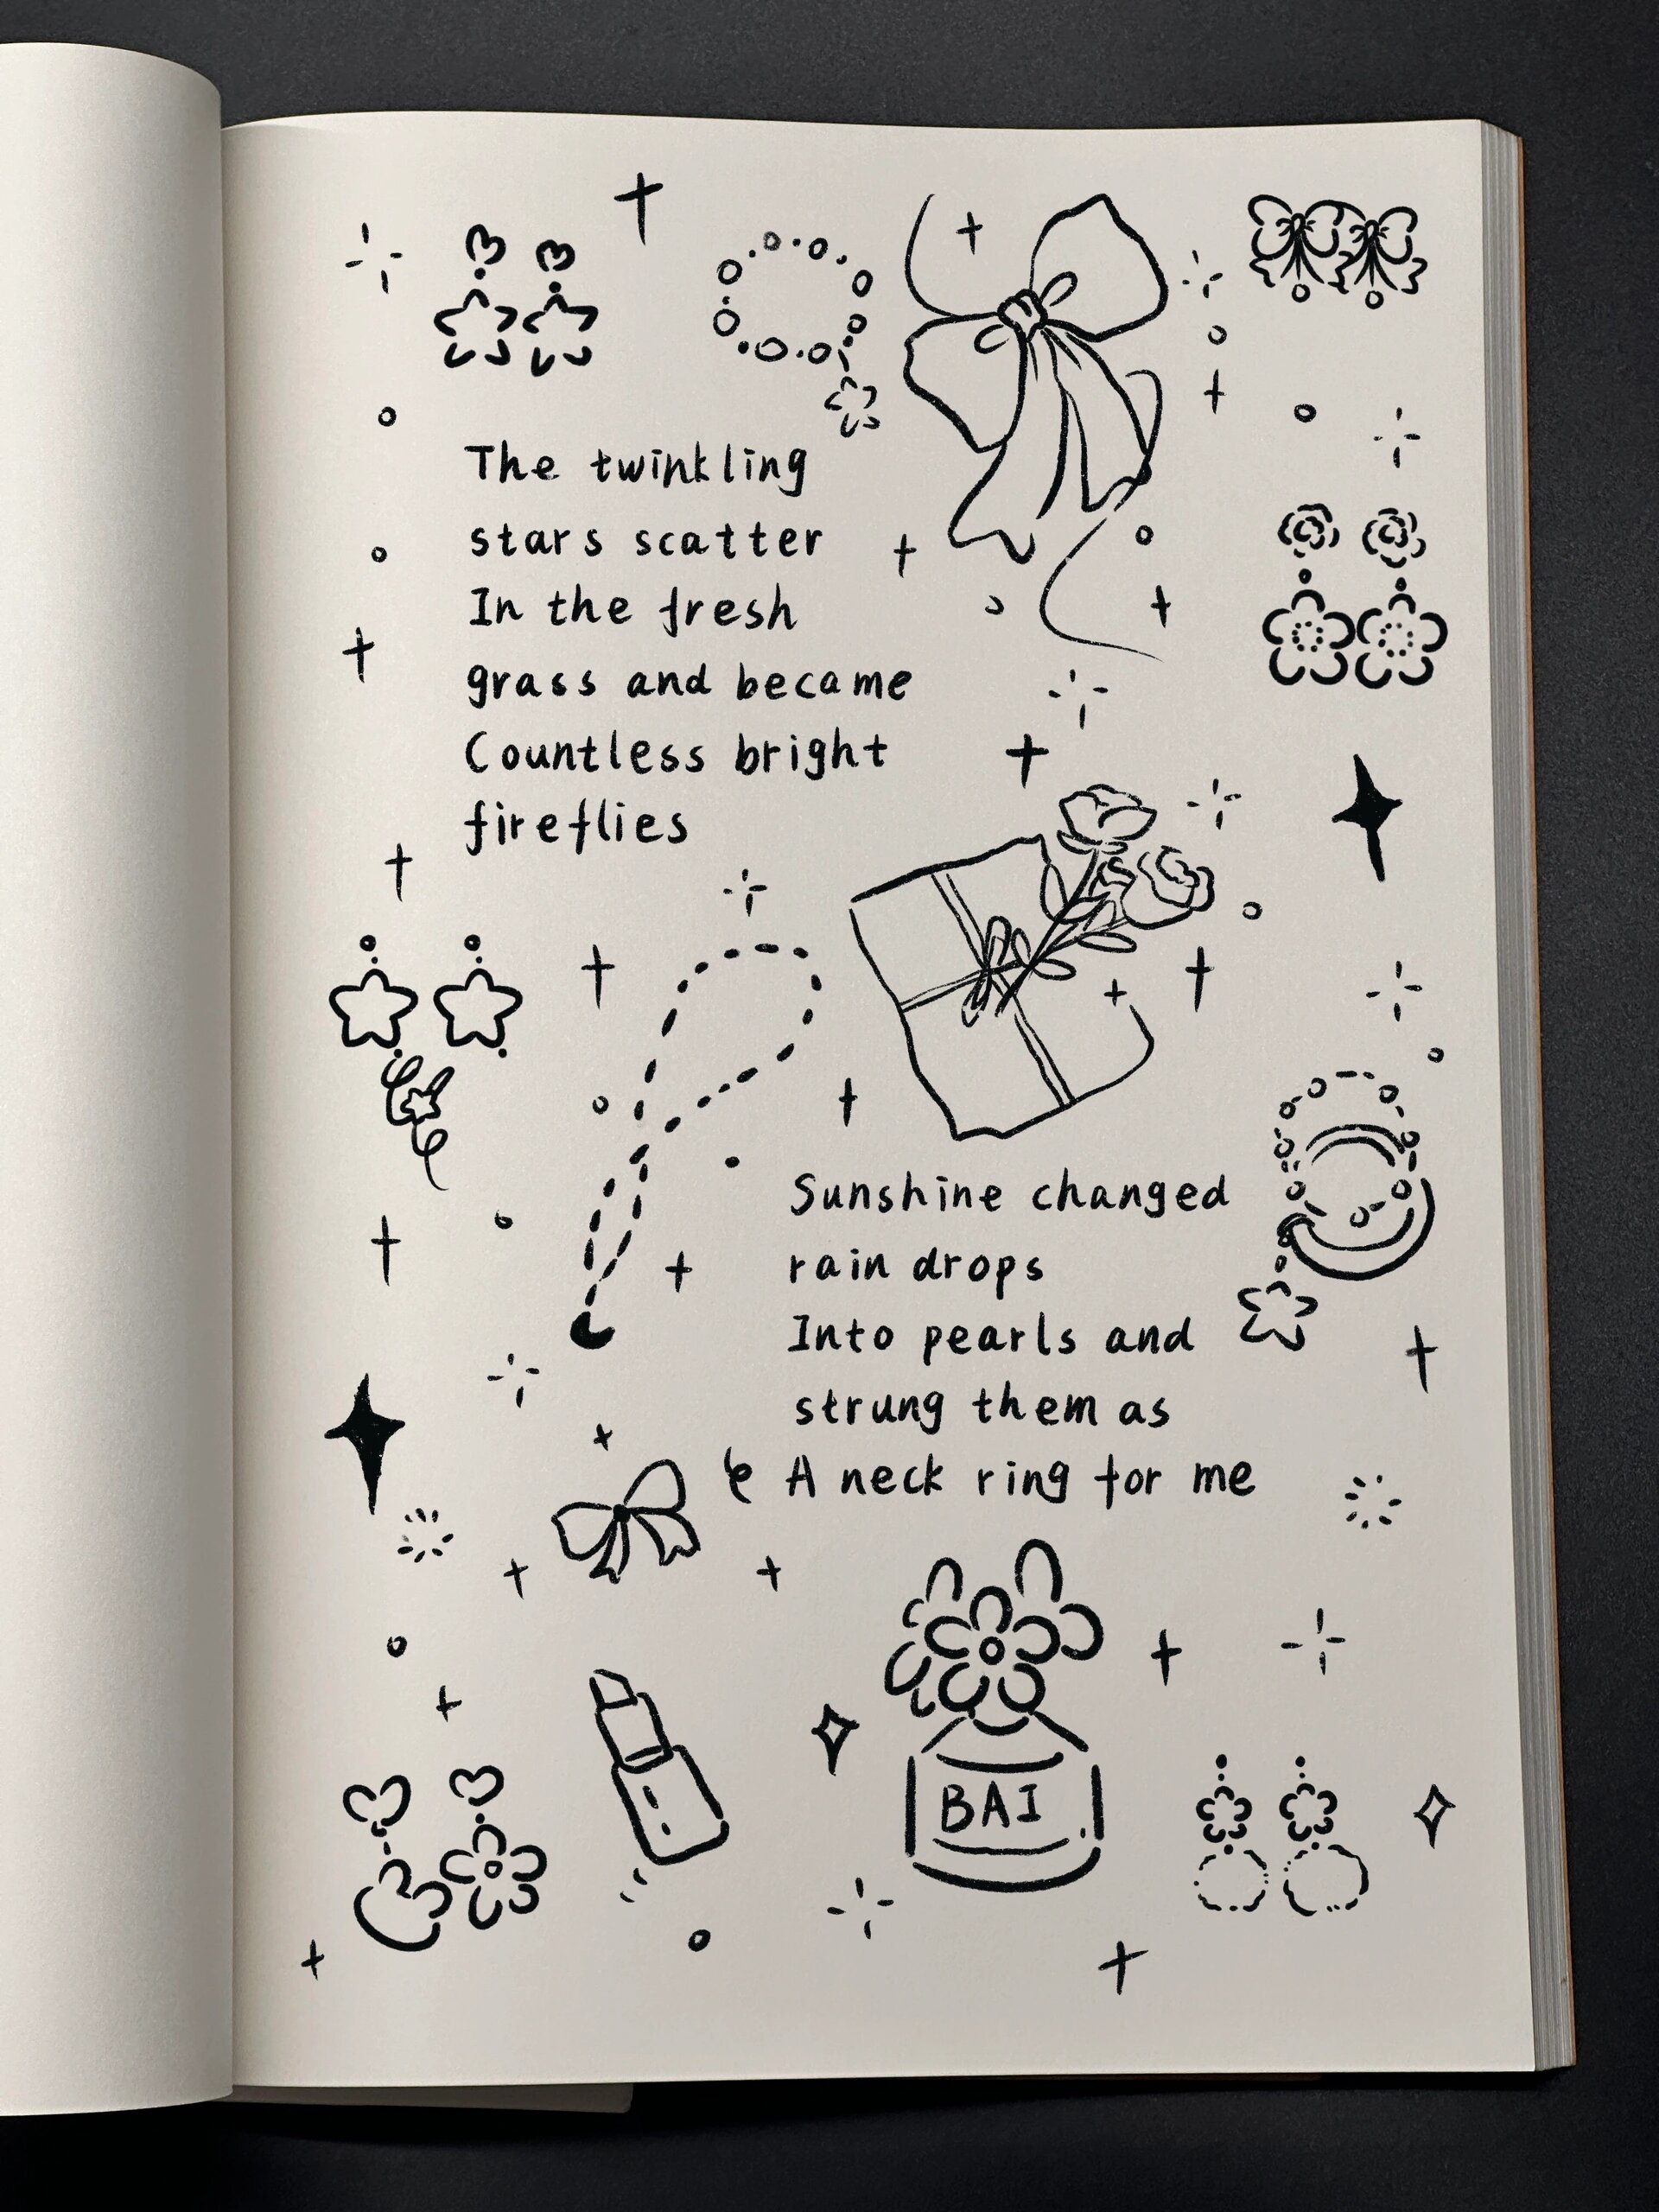 The twinkling
stars scatter
In the fresh
grass and became
Countless bright
fireflies
Sunshine changed
rain drops
Into pearls and
strung them as
A neck ring for me
BAI